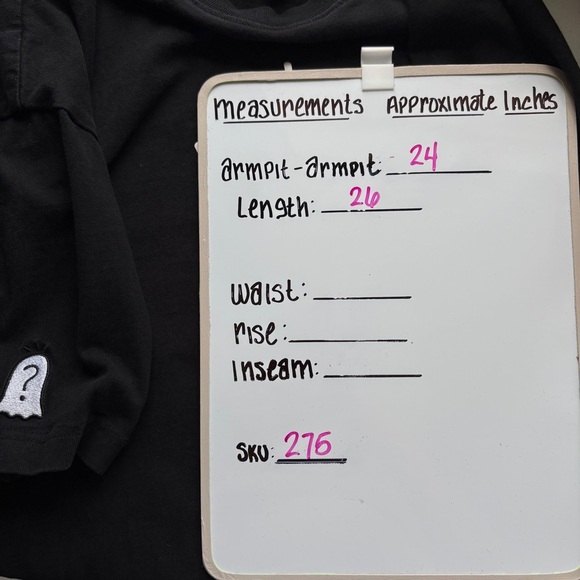 measurements Approximate Inches
armpit-armpit: 24
Length: 26
waist:
rise:
Inseam:
SKU: 275
?